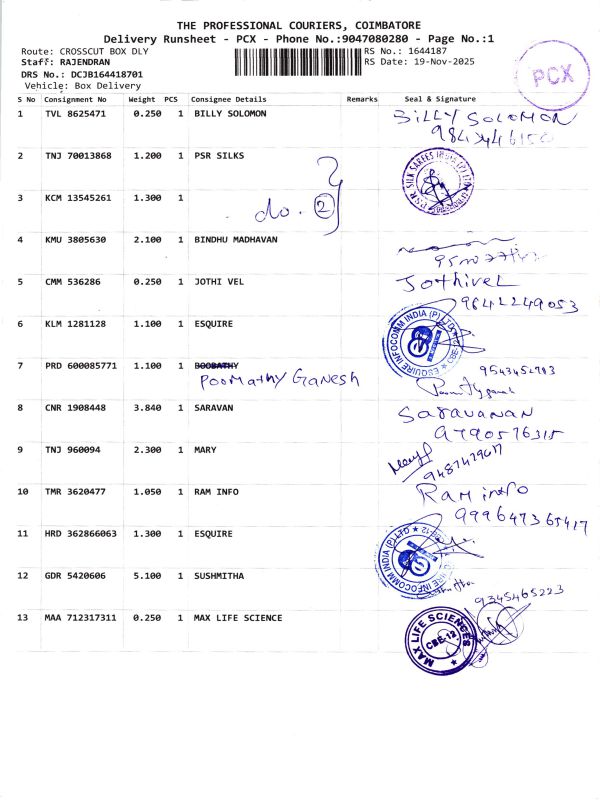 THE PROFESSIONAL COURIERS, COIMBATORE
Delivery Runsheet - PCX - Phone No.:9047080280 - Page No.:1
Route: CROSSCUT BOX DLY RS No.: 1644187
Staff: RAJENDRAN RS Date: 19-Nov-2025
DRS No.: DCJB164418701
Vehicle: Box Delivery
PCX
S No Consignment No Weight PCS Consignee Details Remarks Seal & Signature
1 TVL 8625471 0.250 1 BILLY SOLOMON BILLY SOLOMON
2 TNJ 70013868 1.200 1 PSR SILKS
3 KCM 13545261 1.300 1 do. 2
4 KMU 3805630 2.100 1 BINDHU MADHAVAN
5 CMM 536286 0.250 1 JOTHI VEL Jothivel
9842249053
6 KLM 1281128 1.100 1 ESQUIRE ESQUIRE INFOCOMM INDIA (P) LTD
7 PRD 600085771 1.100 1 BOOBATHY 9543452983
Poomathy Ganesh
8 CNR 1908448 3.840 1 SARAVAN Saravanan
9790576315
9 TNJ 960094 2.300 1 MARY Mary
9487429617
10 TMR 3620477 1.050 1 RAM INFO Ram info
999647365417
11 HRD 362866063 1.300 1 ESQUIRE ESQUIRE INFOCOMM INDIA (P) LTD
12 GDR 5420606 5.100 1 SUSHMITHA
9345465223
13 MAA 712317311 0.250 1 MAX LIFE SCIENCE MAX LIFE SCIENCES
CBE-12